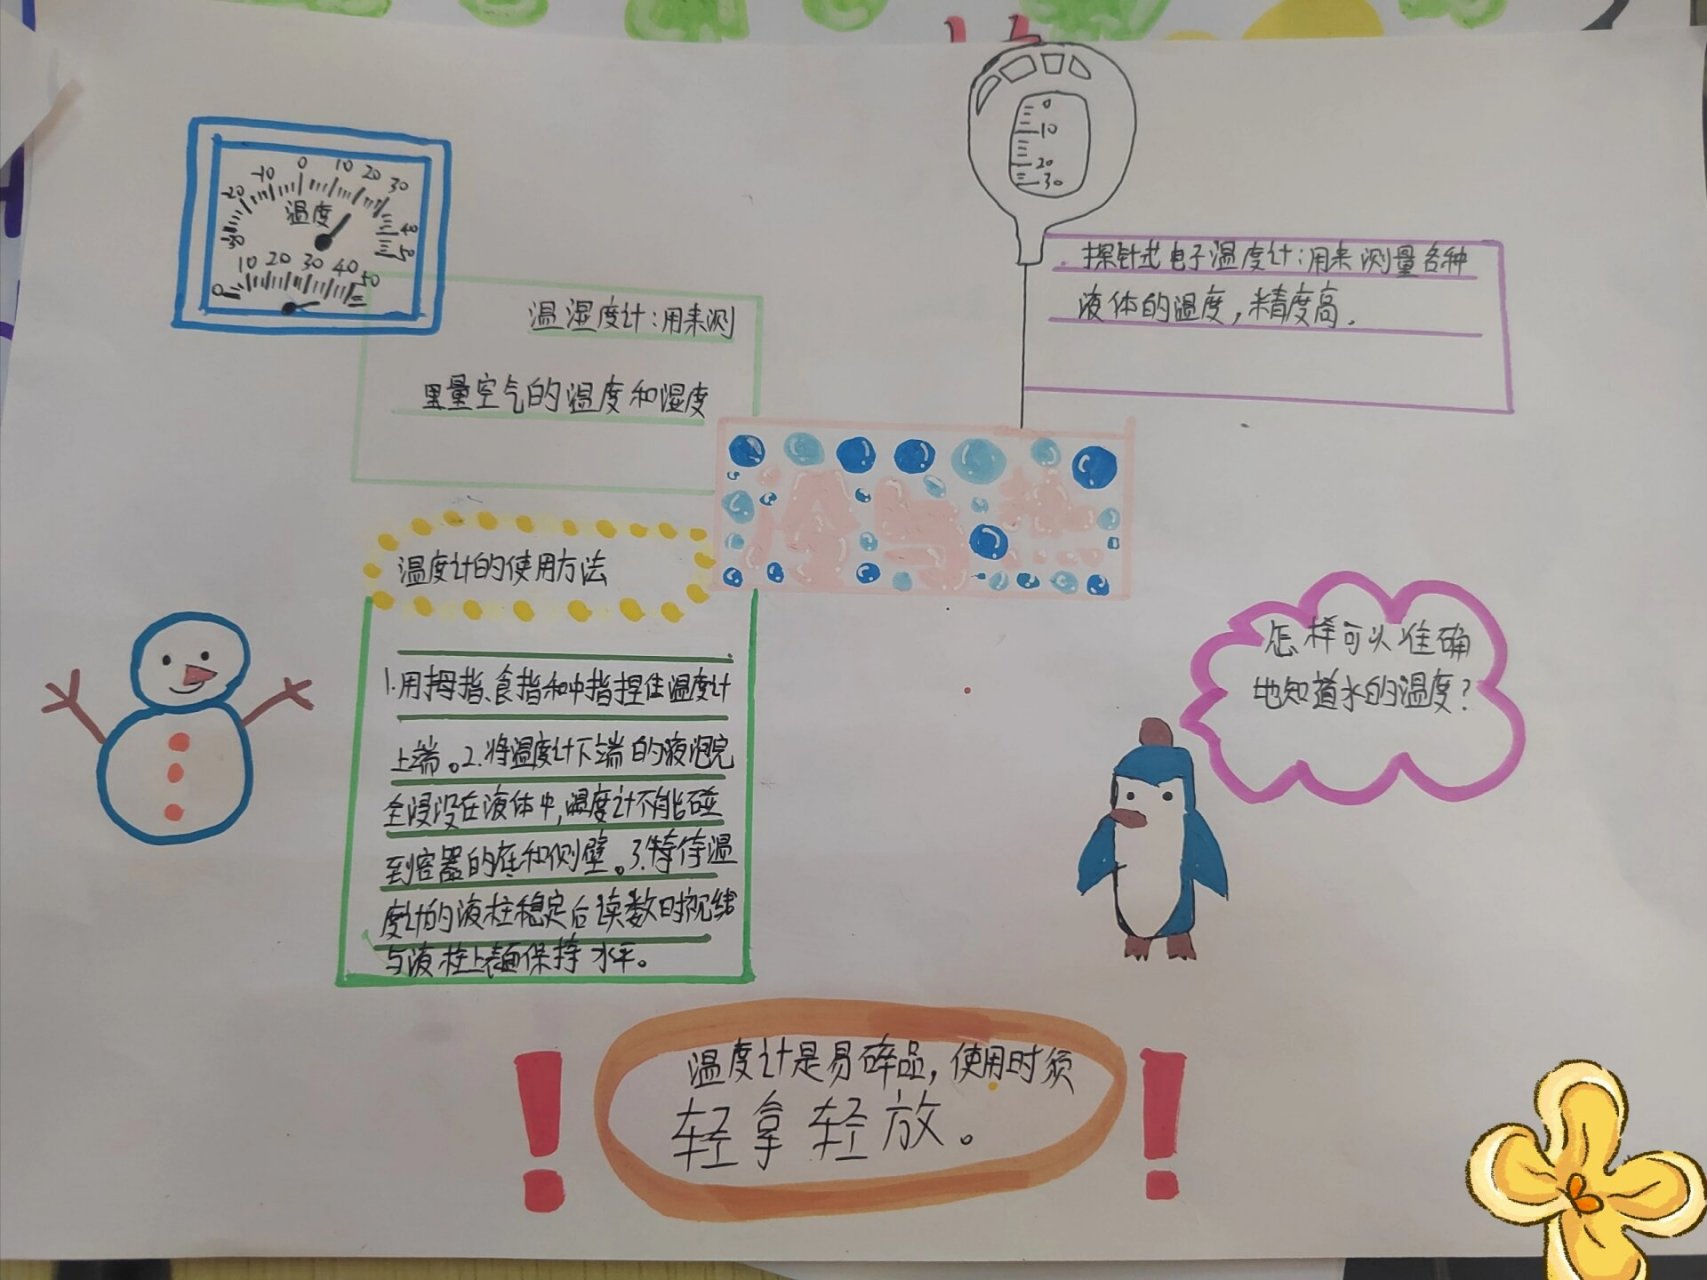 -20 -10 0 10 20 30
温度
-30 40
50
0 10 20 30 40 50
温湿度计:用来测
量空气的温度和湿度
0
10
20
30
探针式电子温度计:用来测量各种
液体的温度,精度高.
冷与热
温度计的使用方法
1.用拇指、食指和中指捏住温度计
上端。2.将温度计下端的液泡完
全浸没在液体中,温度计不能碰
到容器的底和侧壁。3.等待温
度计的液柱稳定后读数时视线
与液柱上表面保持水平。
怎样可以准确
地知道水的温度?
温度计是易碎品,使用时须
轻拿轻放。
! !